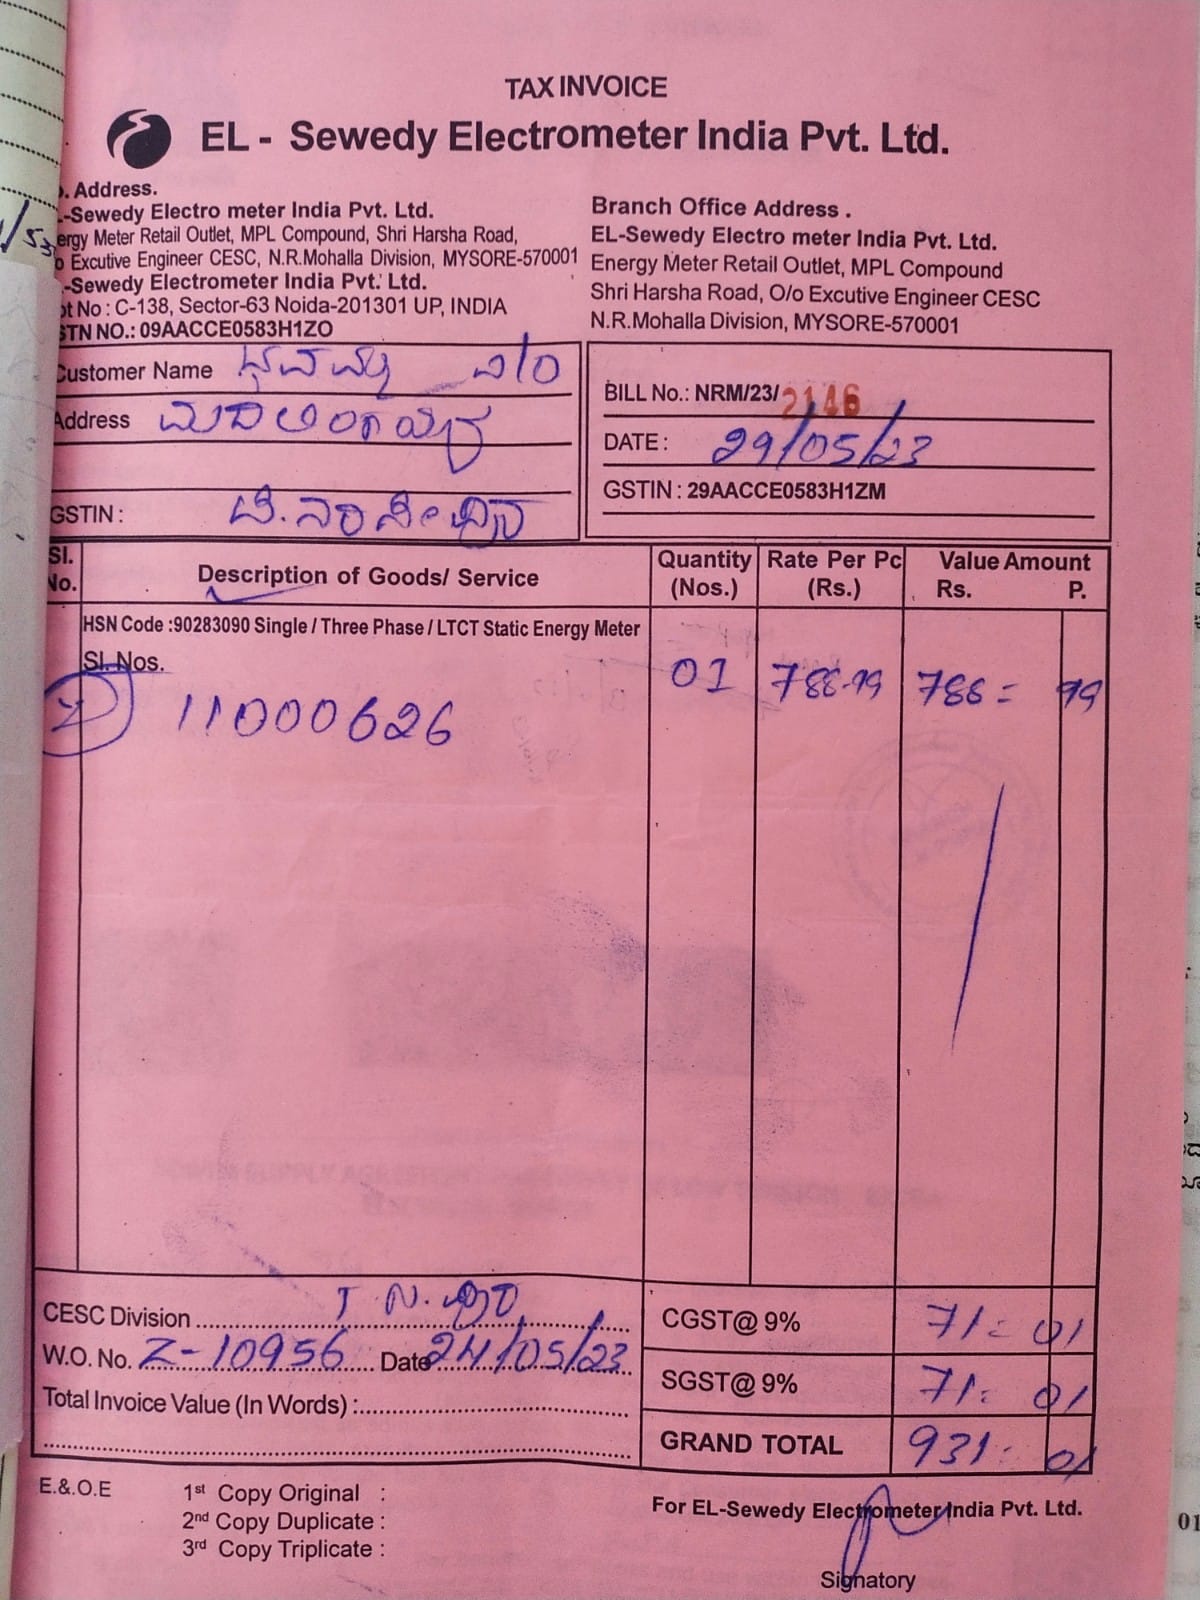 TAX INVOICE
EL - Sewedy Electrometer India Pvt. Ltd.
. Address.
-Sewedy Electro meter India Pvt. Ltd.
ergy Meter Retail Outlet, MPL Compound, Shri Harsha Road,
o Excutive Engineer CESC, N.R.Mohalla Division, MYSORE-570001
-Sewedy Electrometer India Pvt. Ltd.
ot No : C-138, Sector-63 Noida-201301 UP, INDIA
STN NO.: 09AACCE0583H1ZO
Branch Office Address .
EL-Sewedy Electro meter India Pvt. Ltd.
Energy Meter Retail Outlet, MPL Compound
Shri Harsha Road, O/o Excutive Engineer CESC
N.R.Mohalla Division, MYSORE-570001
Customer Name
Address
GSTIN : ಟಿ.ನರಸೀಪುರ
BILL No.: NRM/23/2146
DATE : 29/05/23
GSTIN : 29AACCE0583H1ZM
Sl. No. Description of Goods/ Service Quantity (Nos.) Rate Per Pc (Rs.) Value Amount Rs. P.
HSN Code :90283090 Single / Three Phase / LTCT Static Energy Meter
Sl. Nos.
11000626 01 788-99 788= 99
CESC Division
W.O. No. Z-10956 Date 24/05/23
Total Invoice Value (In Words) :
CGST@ 9% 71= 01
SGST@ 9% 71= 01
GRAND TOTAL 931= 01
E.&.O.E
1st Copy Original :
2nd Copy Duplicate :
3rd Copy Triplicate :
For EL-Sewedy Electrometer India Pvt. Ltd.
Signatory